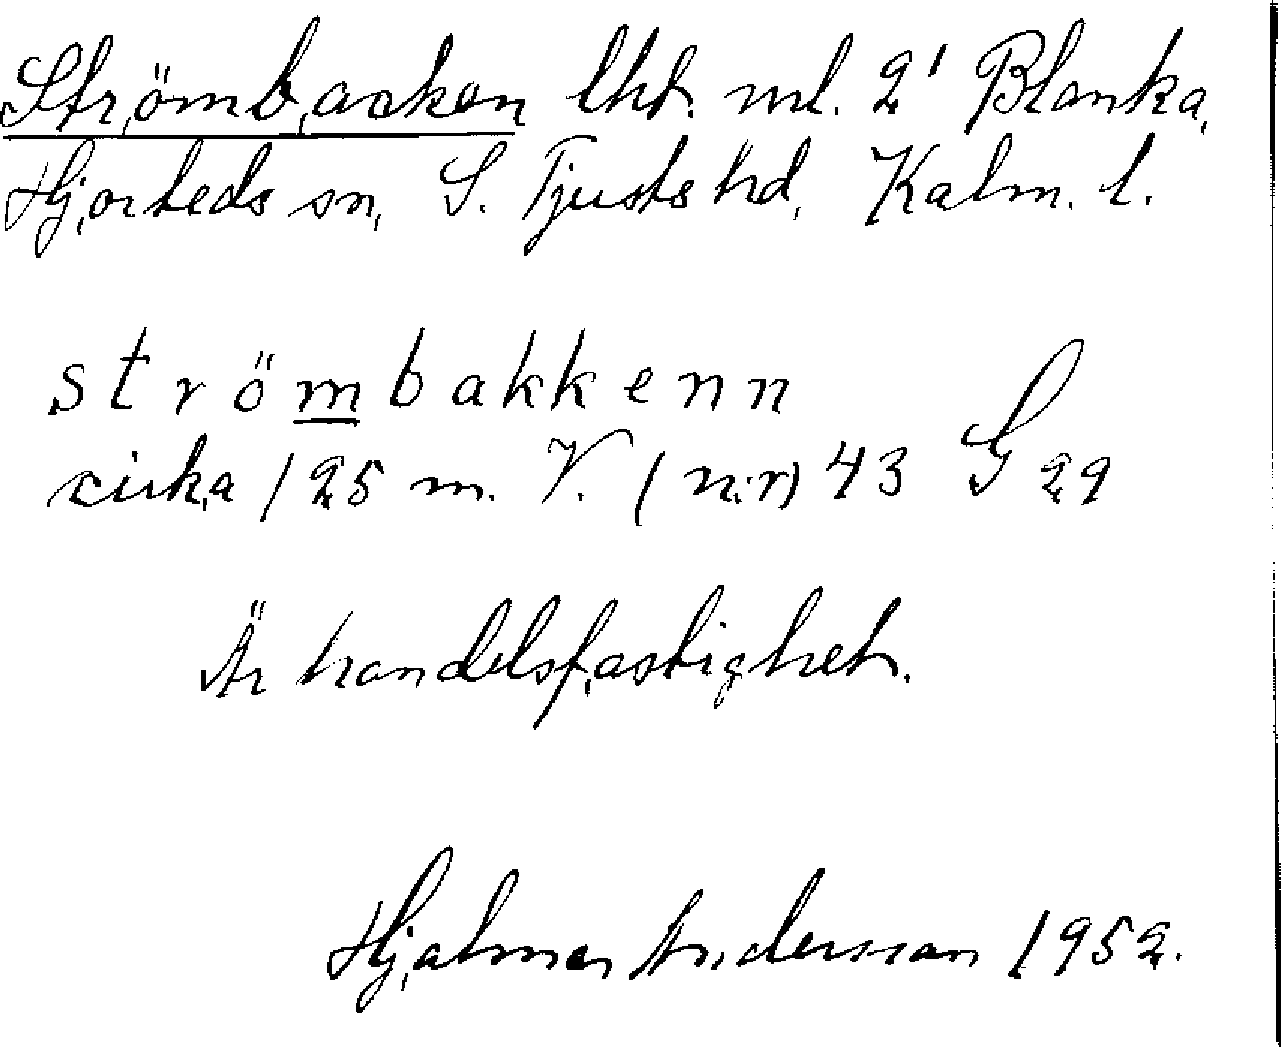 Strömbacken lht. ml. 2¹ Blanka,
Hjorteds sn, S. Tjusts hd, Kalm. l.
strömbakkenn
cirka 125 m. V. (n:r) 43 G 29
Är handelsfastighet.
Hjalmar Andersson 1952.